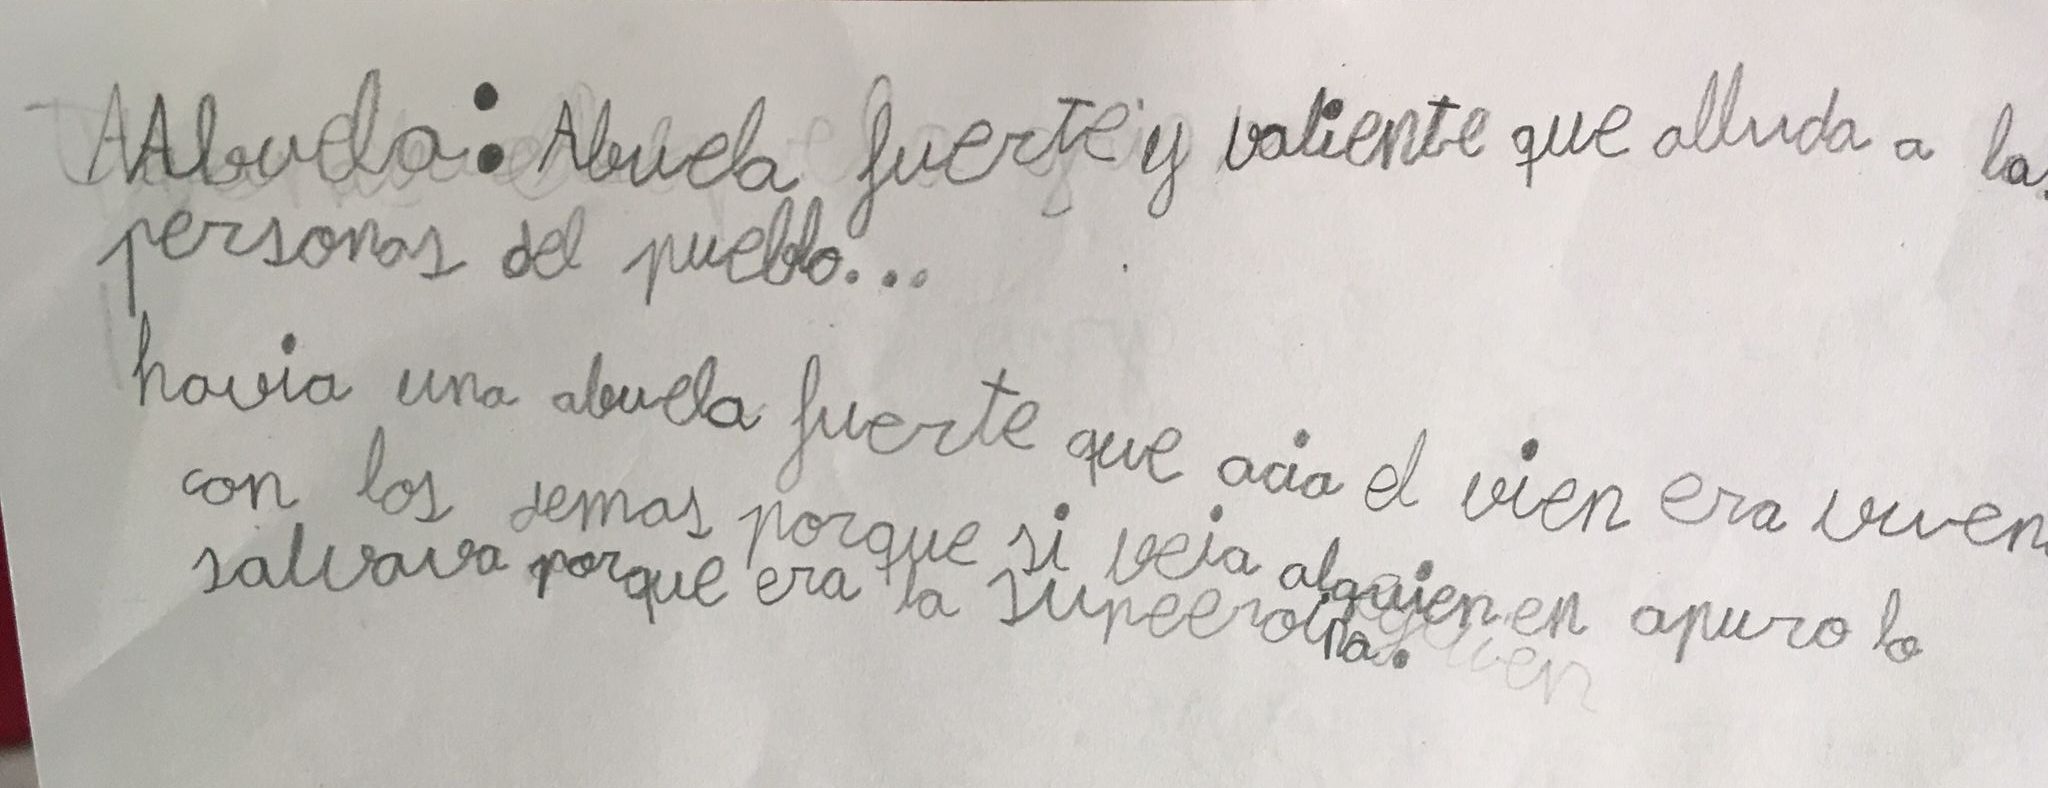 Abuela: Abuela fuerte y valiente que alluda a las
personas del pueblo...
havia una abuela fuerte que acia el vien era vuen
con los demas porque si veia alguien en apuro lo
salvava porque era la supeeroina.